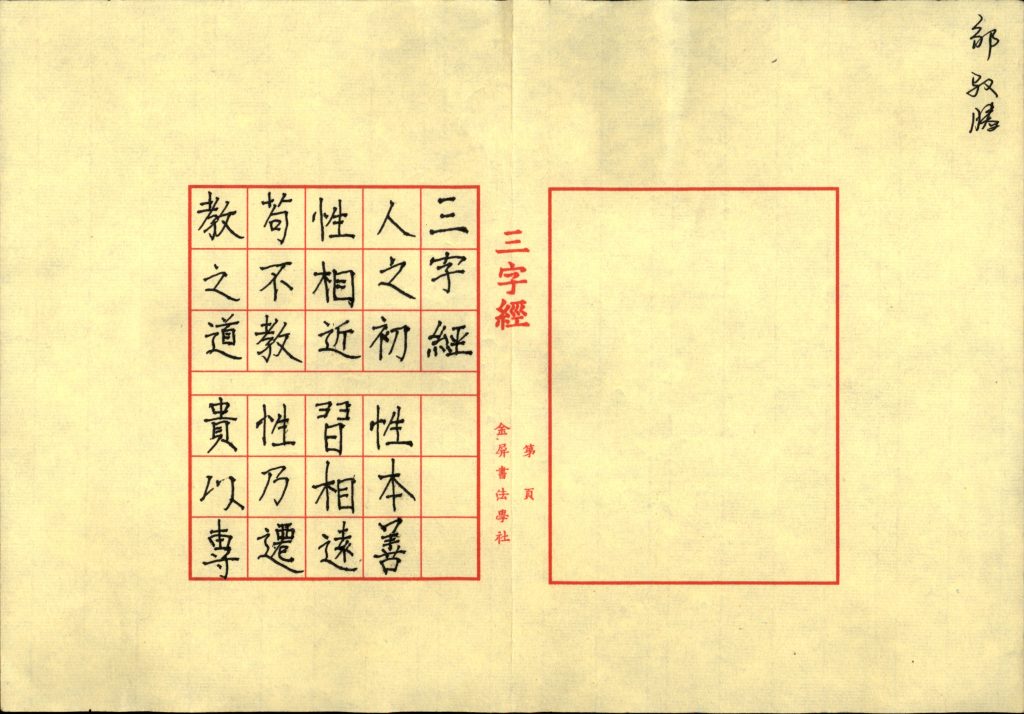 第 頁
三字經
金屏書法學社
三字經
人之初 性本善
性相近 習相遠
苟不教 性乃遷
教之道 貴以專